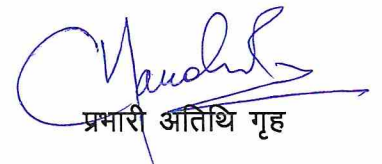 प्रभारी अतिथि गृह